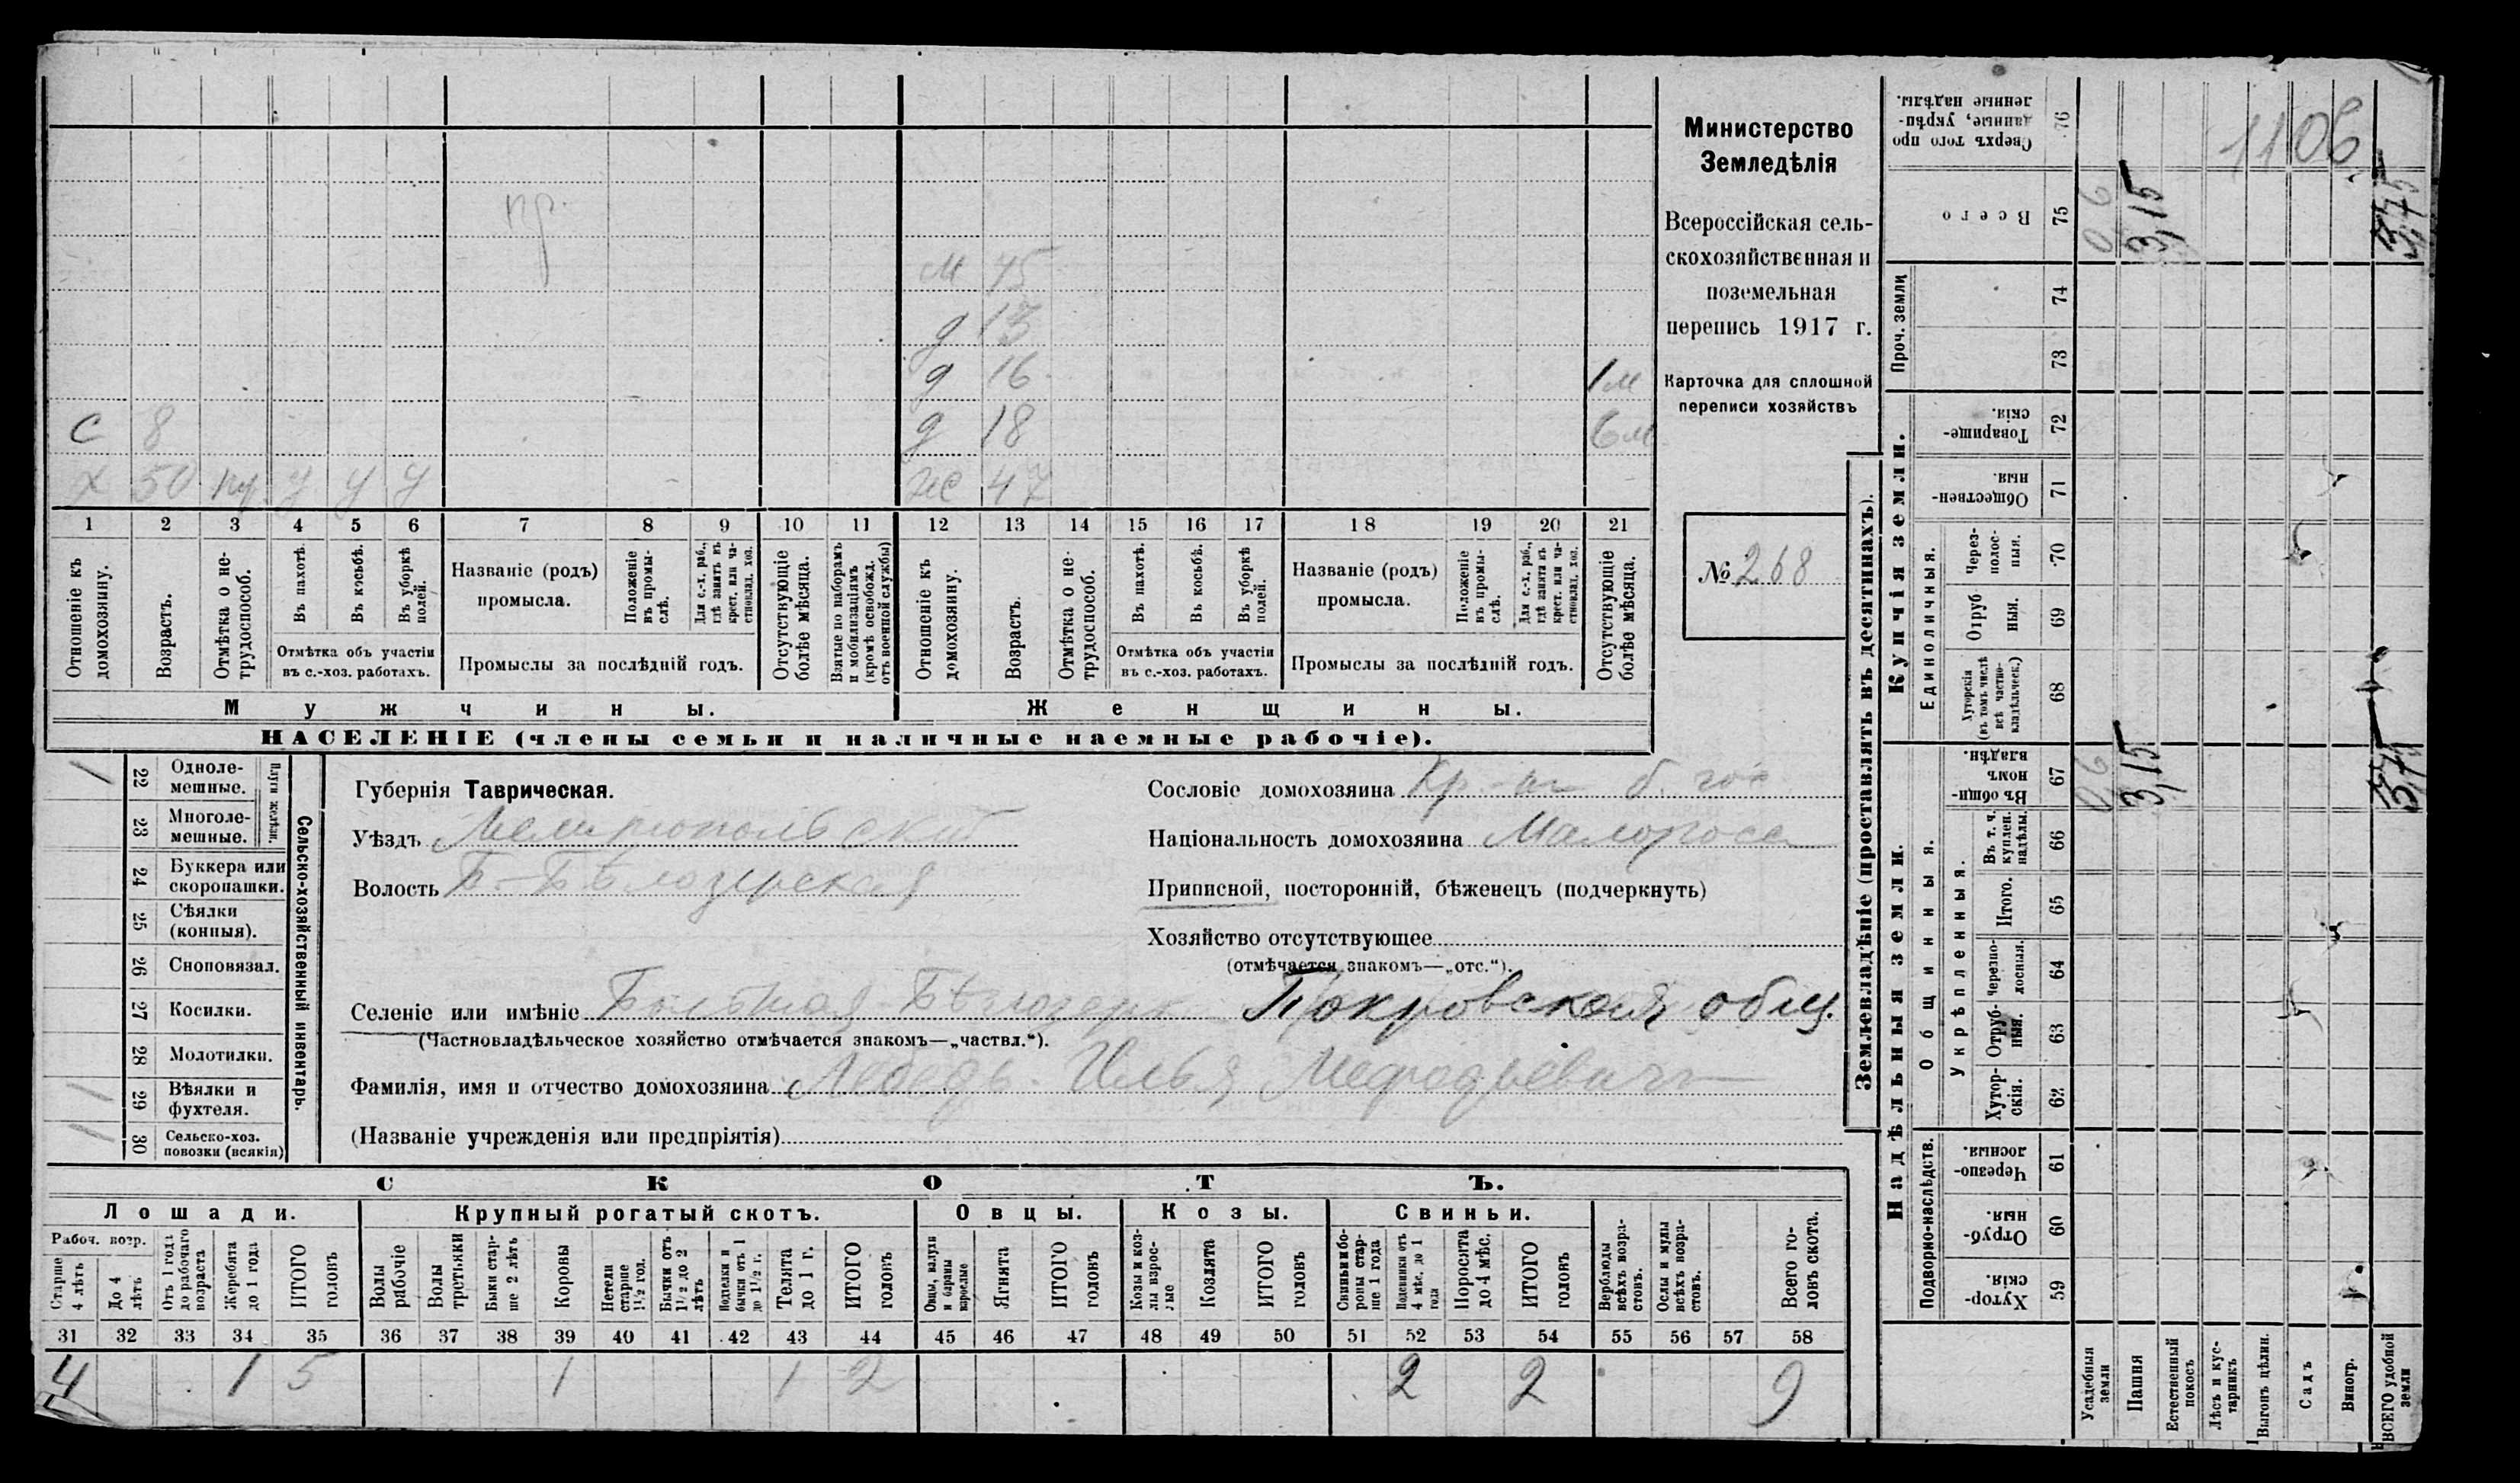 Министерство
Земледѣлія
Всероссійская сель-
скохозяйственная и
поземельная
перепись 1917 г.
Карточка для сплошной
переписи хозяйствъ
№ 268
1106
пр.
м 75
д 13
д 16 1м
с 8 д 18 6м
х 50 пр. у у у ж 47
1 2 3 4 5 6 7 8 9 10 11 12 13 14 15 16 17 18 19 20 21
Отношеніе къ домохозяину.
Возрастъ.
Отмѣтка о не-трудоспособ.
Въ пахотѣ.
Въ косьбѣ.
Въ уборкѣ полей.
Отмѣтка объ участіи
въ с.-хоз. работахъ.
Названіе (родъ)
промысла.
Положеніе въ промы-слѣ.
Для с.-х. раб., гдѣ занятъ въ крест. или ча-стновлад. хоз.
Промыслы за послѣдній годъ.
Отсутствующіе болѣе мѣсяца.
Взятые по наборамъ и мобилизаціямъ (кромѣ освобожд. отъ военной службы)
Отношеніе къ домохозяину.
Возрастъ.
Отмѣтка о не-трудоспособ.
Въ пахотѣ.
Въ косьбѣ.
Въ уборкѣ полей.
Отмѣтка объ участіи
въ с.-хоз. работахъ.
Названіе (родъ)
промысла.
Положеніе въ промы-слѣ.
Для с.-х. раб., гдѣ занята въ крест. или ча-стновлад. хоз.
Промыслы за послѣдній годъ.
Отсутствующіе болѣе мѣсяца.
Мужчины. Женщины.
НАСЕЛЕНІЕ (члены семьи и наличные наемные рабочіе).
Сельско-хозяйственный инвентарь.
Плуги желѣзн.
/ 22 Одноле-мешные.
23 Многоле-мешные.
24 Буккера или скоропашки.
25 Сѣялки (конныя).
26 Сноповязал.
27 Косилки.
28 Молотилки.
1 29 Вѣялки и фухтеля.
1 30 Сельско-хоз. повозки (всякія)
Губернія Таврическая.
Уѣздъ Мелитопольский
Волость Б-Бѣлозерская
Сословіе домохозяина Кр-нъ б. гос
Національность домохозяина Малоросс
Приписной, посторонній, бѣженецъ (подчеркнуть)
Хозяйство отсутствующее
(отмѣчается знакомъ—„отс.“).
Селеніе или имѣніе Большая Бѣлозерк Покровская общ.
(Частновладѣльческое хозяйство отмѣчается знакомъ—„частвл.“).
Фамилія, имя и отчество домохозяина Лебедь Илья Мефодьевичъ
(Названіе учрежденія или предпріятія)
СКОТЪ.
Лошади. Крупный рогатый скотъ. Овцы. Козы. Свиньи.
Рабоч. возр.
Старше 4 лѣтъ
До 4 лѣтъ
Отъ 1 года до рабочаго возраста
Жеребята до 1 года
ИТОГО головъ
Волы рабочіе
Волы третьяки
Быки стар-ше 2 лѣтъ
Коровы
Нетели старше 1½ год.
Бычки отъ 1½ до 2 лѣтъ
Телки и бычки отъ 1 до 1½ г.
Телята до 1 г.
ИТОГО головъ
Овцы, валухи и бараны взрослые
Ягнята
ИТОГО головъ
Козы и коз-лы взрос-лые
Козлята
ИТОГО головъ
Свиньи и бо-ровы стар-ше 1 года
Подсвинки отъ 4 мѣс. до 1 года
Поросята до 4 мѣс.
ИТОГО головъ
Верблюды всѣхъ возра-стовъ.
Ослы и мулы всѣхъ возра-стовъ.
Всего го-ловъ скота.
31 32 33 34 35 36 37 38 39 40 41 42 43 44 45 46 47 48 49 50 51 52 53 54 55 56 57 58
4 1 5 1 1 2 2 2 9
Землевладѣніе (проставлять въ десятинахъ).
Надѣльныя земли.
Купчія земли.
Проч. земли
Подворно-наслѣдств.
Общинныя.
Укрѣпленныя.
Единоличныя.
Сверхъ того про данные, укрѣп-ленные надѣлы. 76
Всего 75 0,6 3,15 3,75
74
73
Товарище-скія. 72
Обществен-ныя. 71
Через-полос-ныя. 70
Отруб-ныя. 69
Хуторскія (въ томъ числѣ всѣ частно-владѣльческ.) 68
Въ общи-номъ владѣн. 67 0,6 3,15 3,75
Въ т. ч. куплен. надѣлы. 66
Итого. 65
Черезпо-лосныя. 64
Отруб-ныя. 63
Хутор-скія. 62
Черезпо-лосныя. 61
Отруб-ныя. 60
Хутор-скія. 59
Усадебныя земли
Пашня
Естественный покосъ
Лѣсъ и кус-тарникъ
Выгонъ цѣлин.
Садъ
Виногр.
ВСЕГО удобной земли